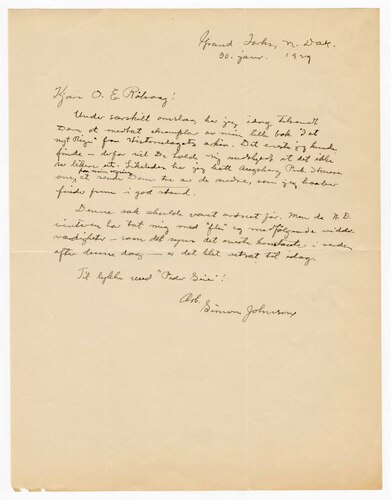 Grand Forks, N. Dak.
30. janr. 1929
Kjære O. E. Rölvaag!
Under særskilt omslag har jeg idag tilsendt
Dem et medtat eksemplar av min lille bok "I et
nyt Rige" fra Historielagets arkiv. Det eneste jeg kunde
finde – derfor vil De holde mig undskyldt at det ikke
ser likere ut. Likeledes har jeg bedt Augsburg Pub. House
om, at sende Dem to av de andre, som jeg haaber
finder frem i god stand.
Denne sak skulde været ordnet før. Men da N. D.
vinteren har tat mig med "flu" og medfølgende
– som det synes det eneste konstante i verden
efter denne dag – er det blit utsat til idag.
Til lykke med "Peder Seier"!
Arb.
Simon Johnson